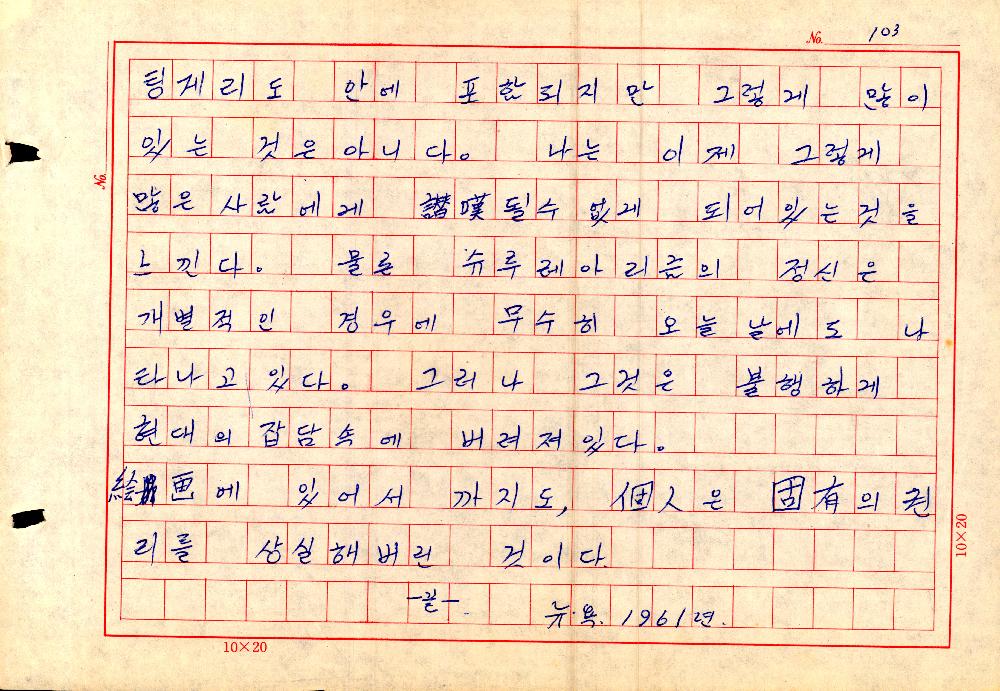 No. 103
팅게리도 안에 포함되지만 그렇게 많이
있는 것은아니다. 나는 이제 그렇게
많은 사람에게 讃嘆될수 없게 되어있는것을
느낀다. 물론 슈루레아리즘의 정신은
개별적인 경우에 무수히 오늘날에도 나
타나고 있다. 그러나 그것은 불행하게
현대의 잡담속에 버려져있다.
絵画에 있어서 까지도, 個人은 固有의 권
리를 상실해버린 것이다.
-끝- 뉴·욕. 1961년.
No.
10×20
10×20